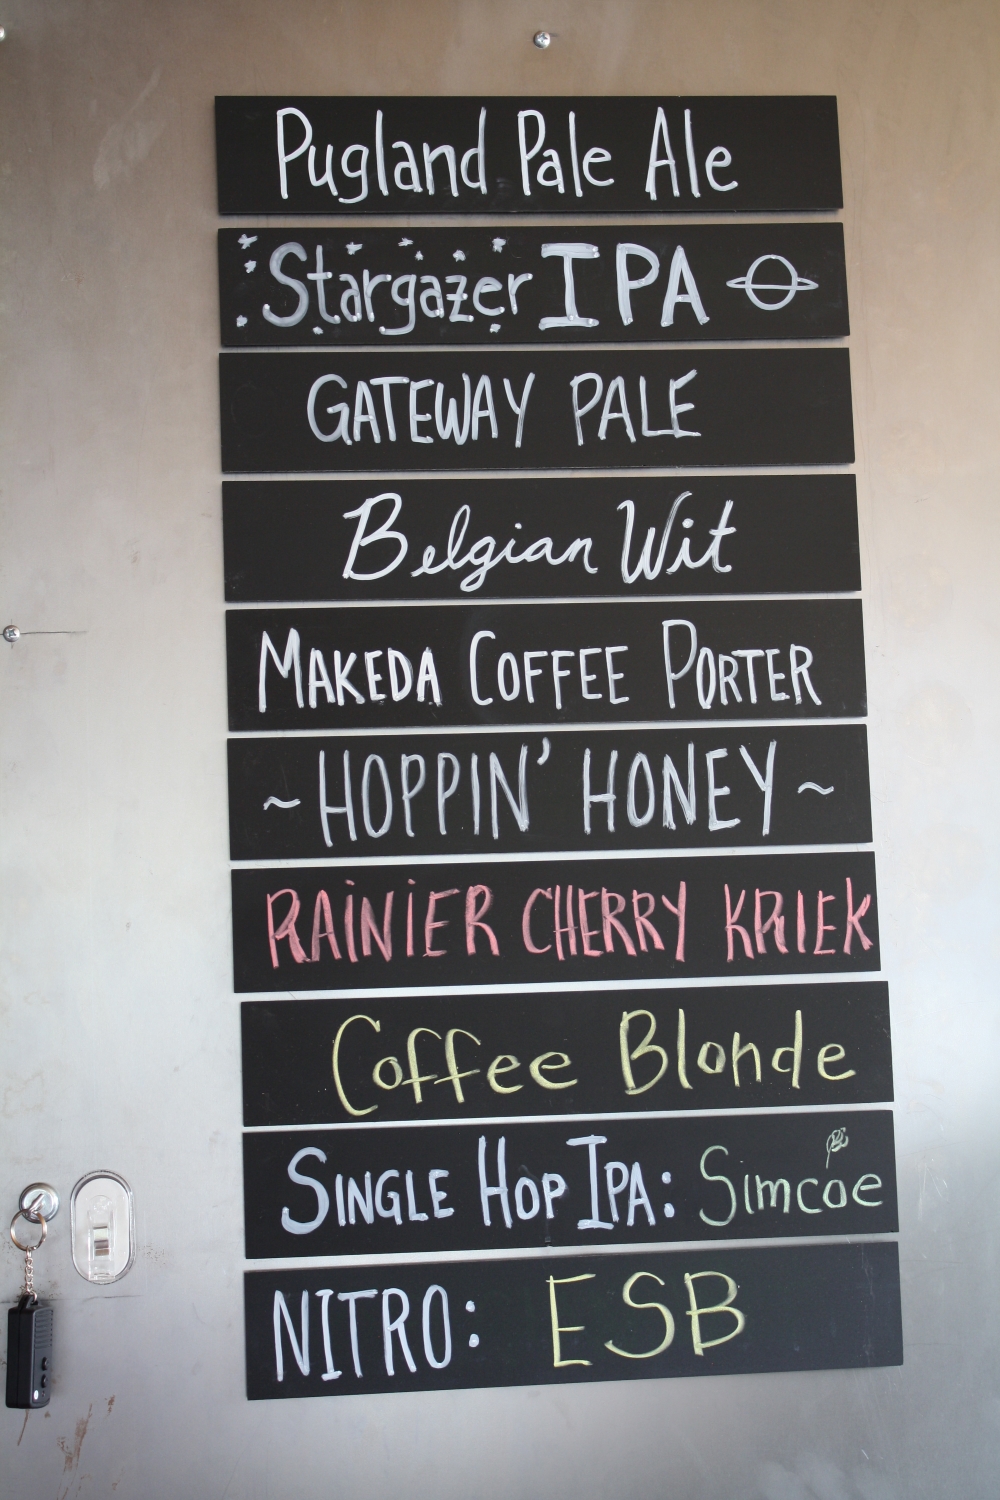 Pugland Pale Ale
Stargazer IPA
GATEWAY PALE
Belgian Wit
MAKEDA COFFEE PORTER
~HOPPIN' HONEY~
RAINIER CHERRY KRIEK
Coffee Blonde
SINGLE HOP IPA: Simcoe
NITRO: ESB